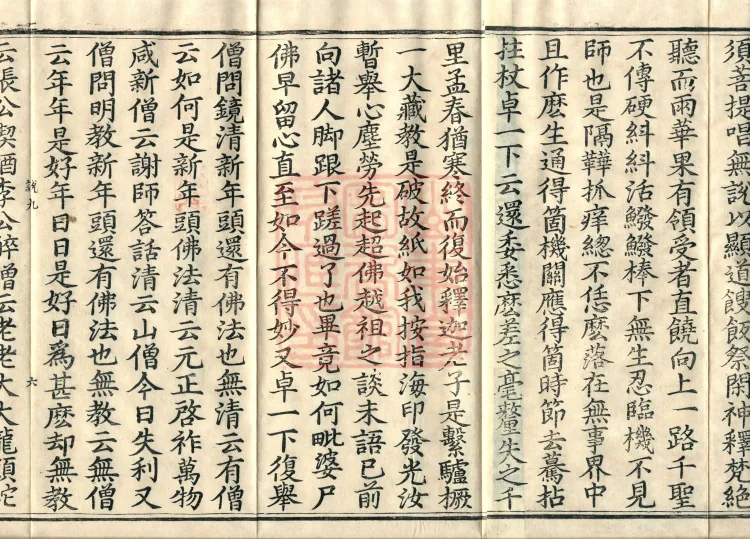 須菩提唱無說以顯道餿飯祭閑神釋梵絕
聽而雨華果有領受者直饒向上一路千聖
不傳硬糾糾活鱍鱍棒下無生忍臨機不見
師也是隔鞾抓痒緫不恁麽落在無事界中
且作麽生通得箇機關應得箇時節去驀拈
拄杖卓一下云還委悉麽差之毫釐失之千
里孟春猶寒終而復始釋迦老子是繫驢橛
一大藏教是破故紙如我按指海印發光汝
暫舉心塵勞先起超佛越祖之談未語已前
向諸人脚跟下蹉過了也畢竟如何毗婆尸
佛早留心直至如今不得妙又卓一下復舉
僧問鏡清新年頭還有佛法也無清云有僧
云如何是新年頭佛法清云元正啓祚萬物
咸新僧云謝師答話清云山僧今日失利又
僧問明教新年頭還有佛法也無教云無僧
云年年是好年日日是好日爲甚麽却無教
說九
六
云張公喫酒李公醉僧云老老大大龍頭蛇